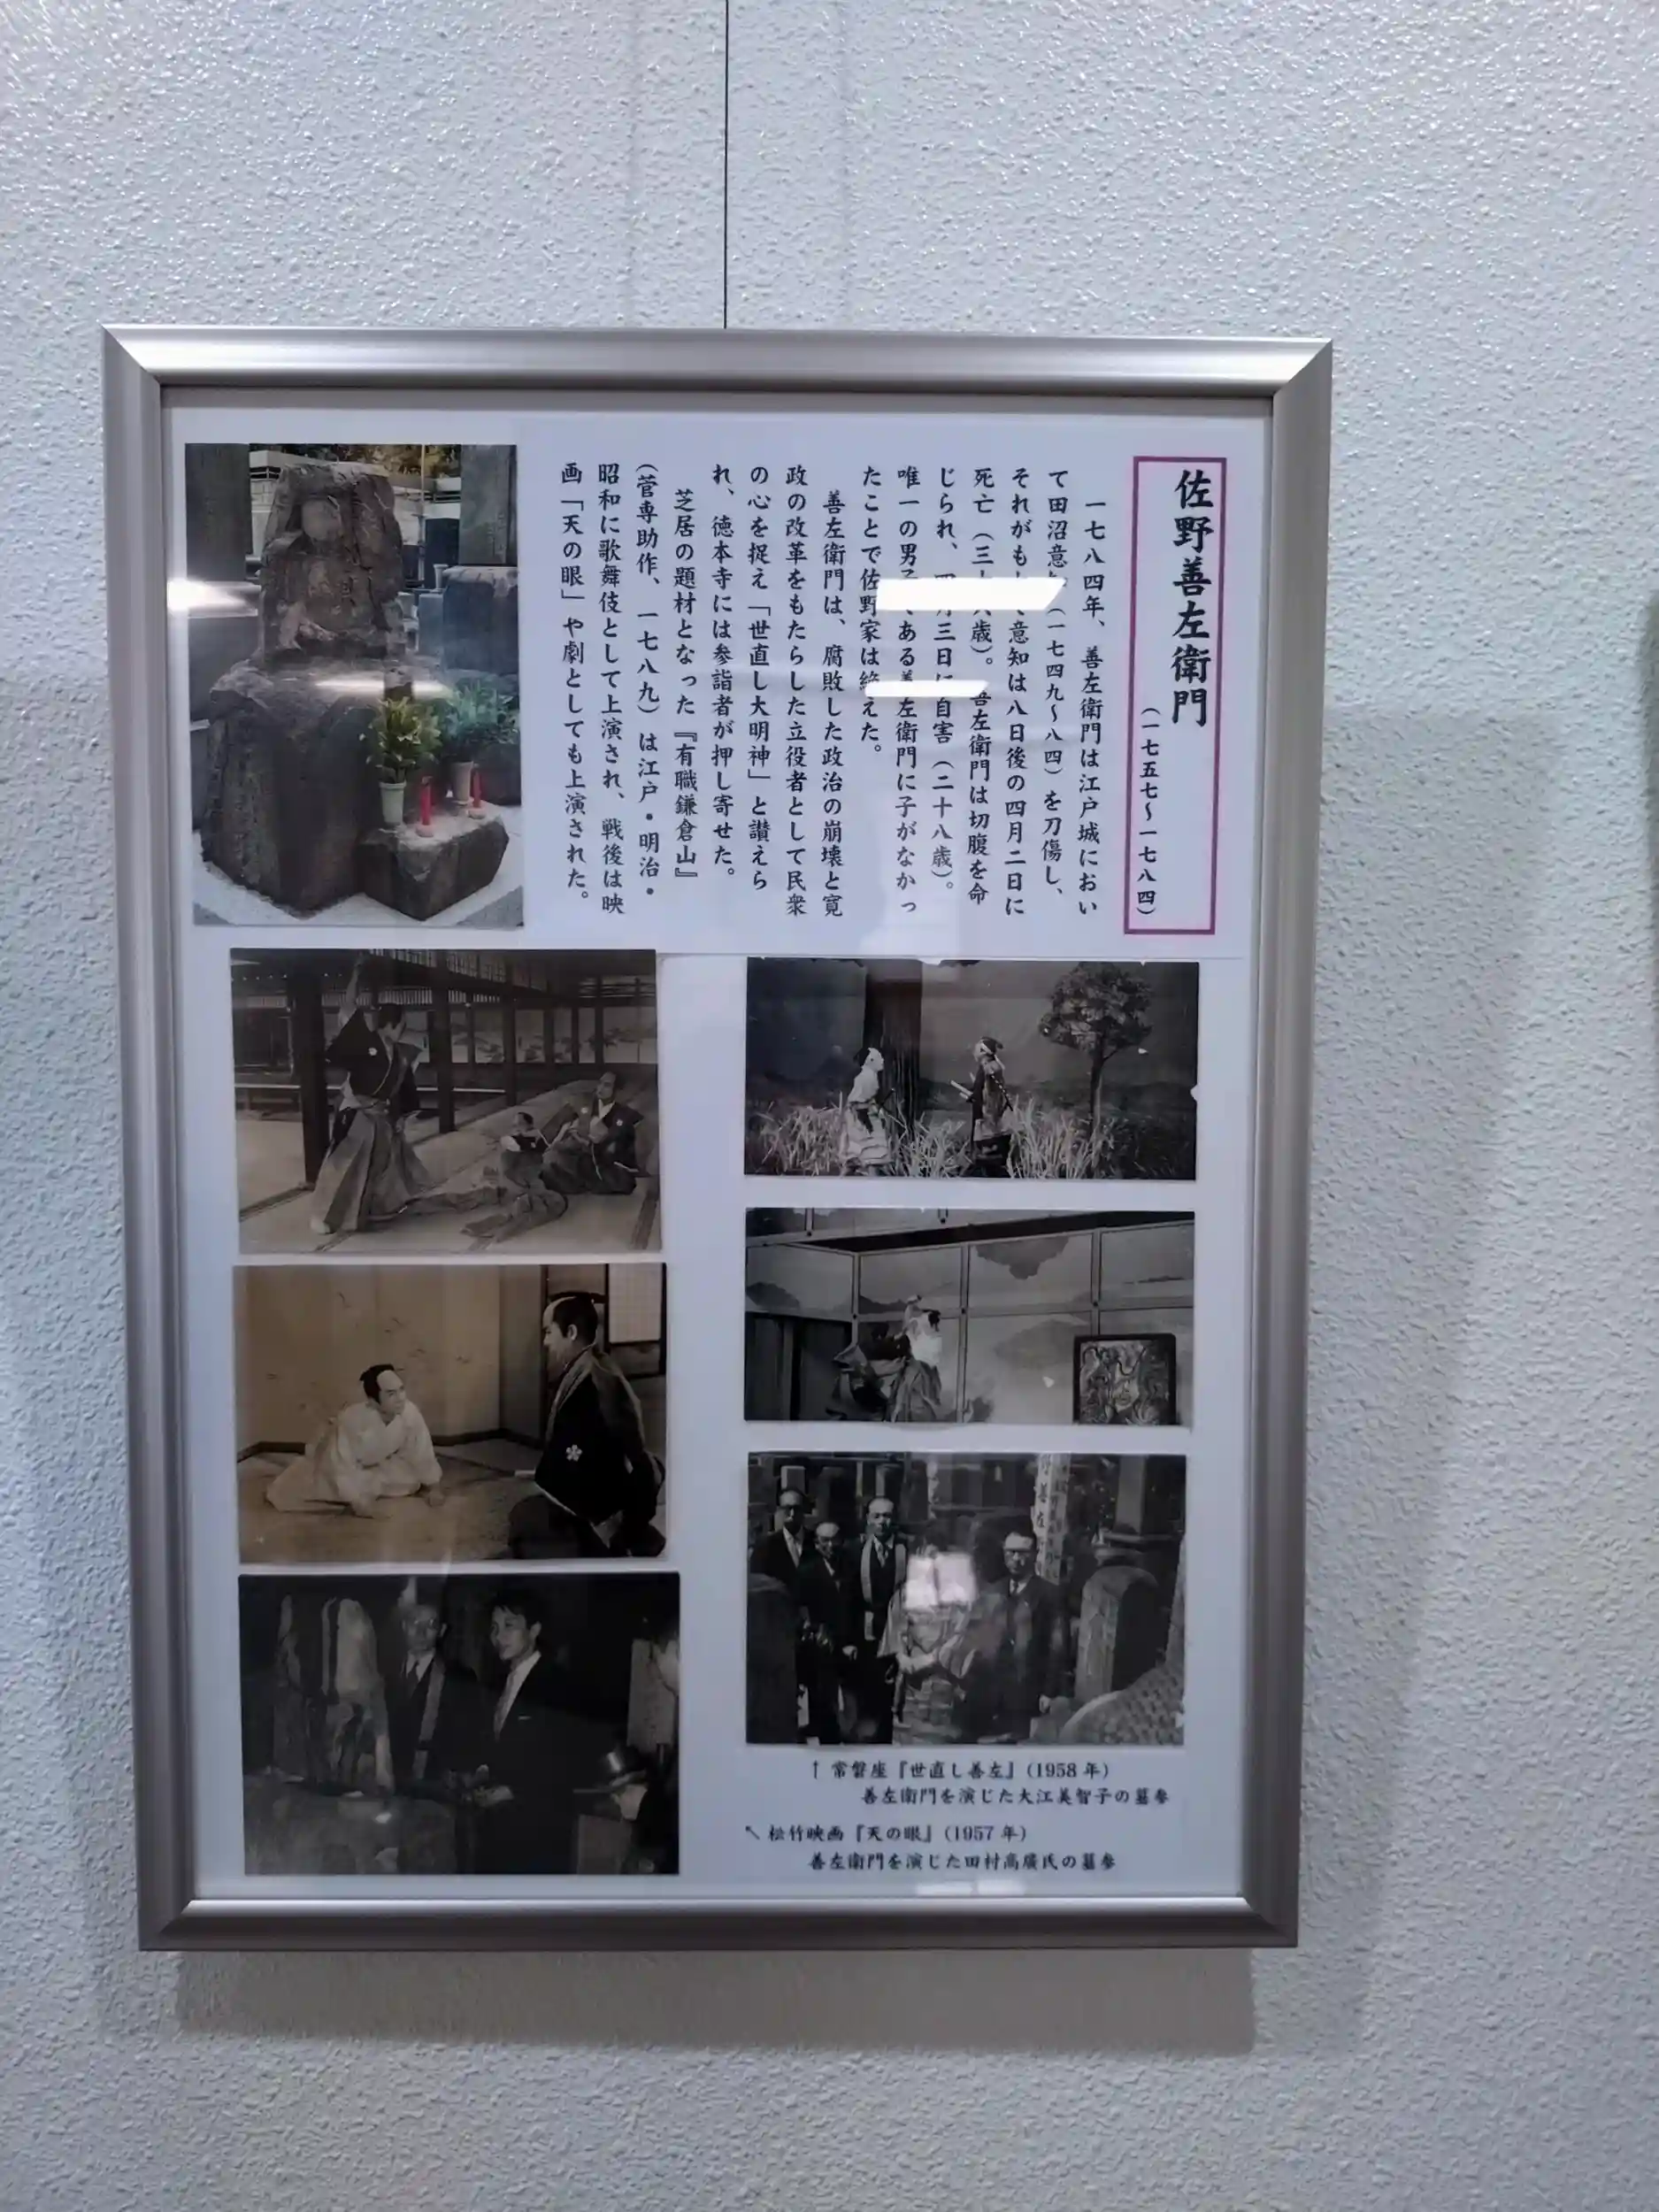 佐野善左衛門
(一七五七〜一七八四)
一七八四年、善左衛門は江戸城におい
て田沼意 (一七四九〜八四)を刀傷し、
それがも 意知は八日後の四月二日に
死亡(三 歳)。善左衛門は切腹を命
じられ、四月三日に自害(二十八歳)。
唯一の男子である善左衛門に子がなかっ
たことで佐野家は絶えた。
善左衛門は、腐敗した政治の崩壊と寛
政の改革をもたらした立役者として民衆
の心を捉え「世直し大明神」と讃えら
れ、徳本寺には参詣者が押し寄せた。
芝居の題材となった『有職鎌倉山』
(菅専助作、一七八九)は江戸・明治・
昭和に歌舞伎として上演され、戦後は映
画「天の眼」や劇としても上演された。
↑ 常磐座『世直し善左』(1958 年)
善左衛門を演じた大江美智子の墓参
↖ 松竹映画『天の眼』(1957 年)
善左衛門を演じた田村高廣氏の墓参